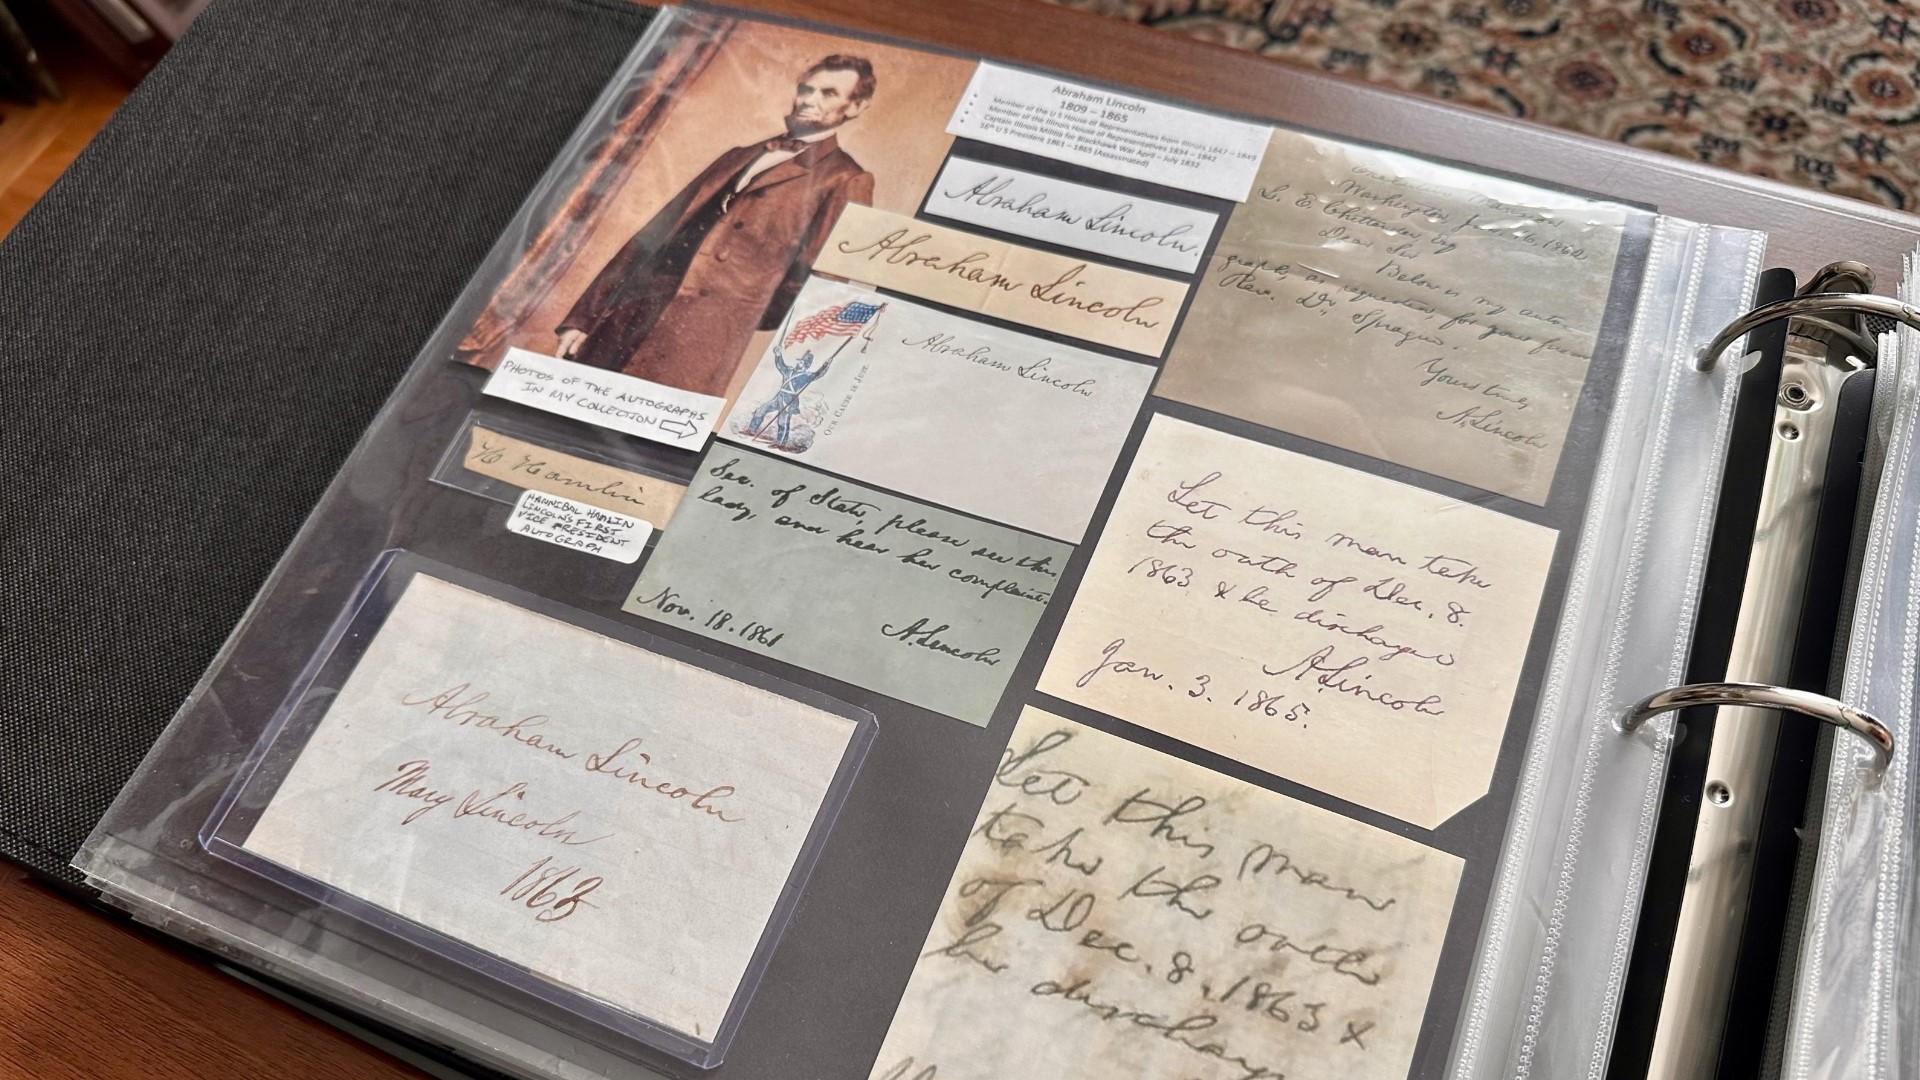 Abraham Lincoln
1809 – 1865
Member of the U S House of Representatives from Illinois 1847 – 1849
Member of the Illinois House of Representatives 1834 – 1842
Captain Illinois Militia for Blackhawk War April – July 1832
16th U S President 1861 – 1865 (Assassinated)
Abraham Lincoln.
Abraham Lincoln
Abraham Lincoln
OUR CAUSE IS JUST.
PHOTOS OF THE AUTOGRAPHS
IN MY COLLECTION
H Hamlin
HANNIBAL HAMLIN
LINCOLN'S FIRST
VICE PRESIDENT
AUTOGRAPH
Sec. of State, please see this
lady, and hear her complaint.
A. Lincoln
Nov. 18. 1861
Abraham Lincoln
Mary Lincoln
1863
Executive Mansion
Washington, 16, 1862
L. E. Chittenden, Esq
Dear Sir
Below is my auto-
graph, as requested, for your friend
Rev. Dr. Sprague.
Yours truly
A. Lincoln
Let this man take
the oath of Dec. 8.
1863 & be discharged
A. Lincoln
Jan. 3. 1865.
Let this man
take the oath
of Dec. 8. 1863 &
be discharged